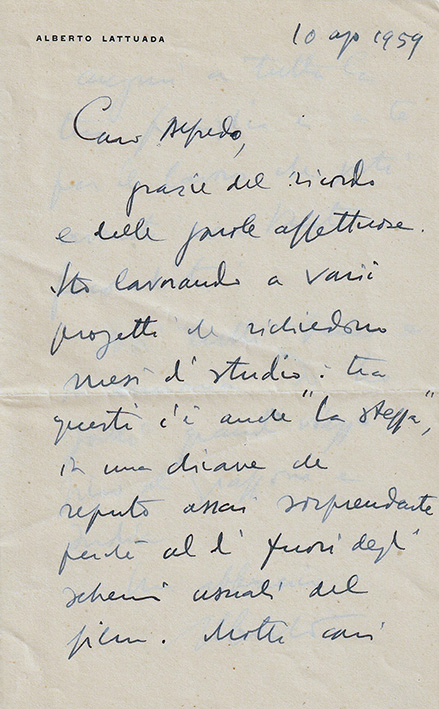 ALBERTO LATTUADA
10 ap 1959
Caro Alfredo,
grazie del ricordo
e delle parole affettuose.
Sto lavorando a varii
progetti che richiedono
mesi di studio: tra
questi c'è anche "la steppa",
in una chiave che
reputo assai sorprendente
perché al di fuori degli
schemi usuali del
film. Molti cari